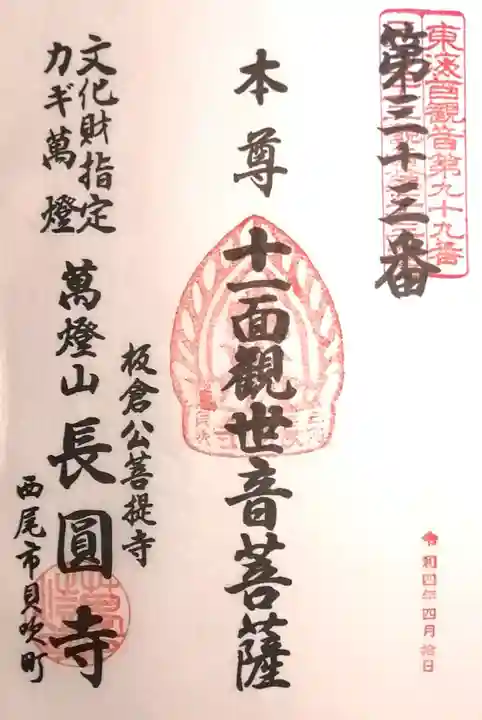 東海百觀音第九十九番
第三十三番
本尊
十一面觀世音菩薩
板倉公菩提寺
萬燈山長圓寺
西尾市貝吹町
文化財指定
カギ萬燈
令和四年四月拾日